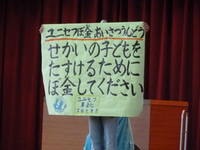 ユニセフぼ金あいさつうんどう
せかいの子どもを
たすけるために
ぼ金してください
ユニセフ